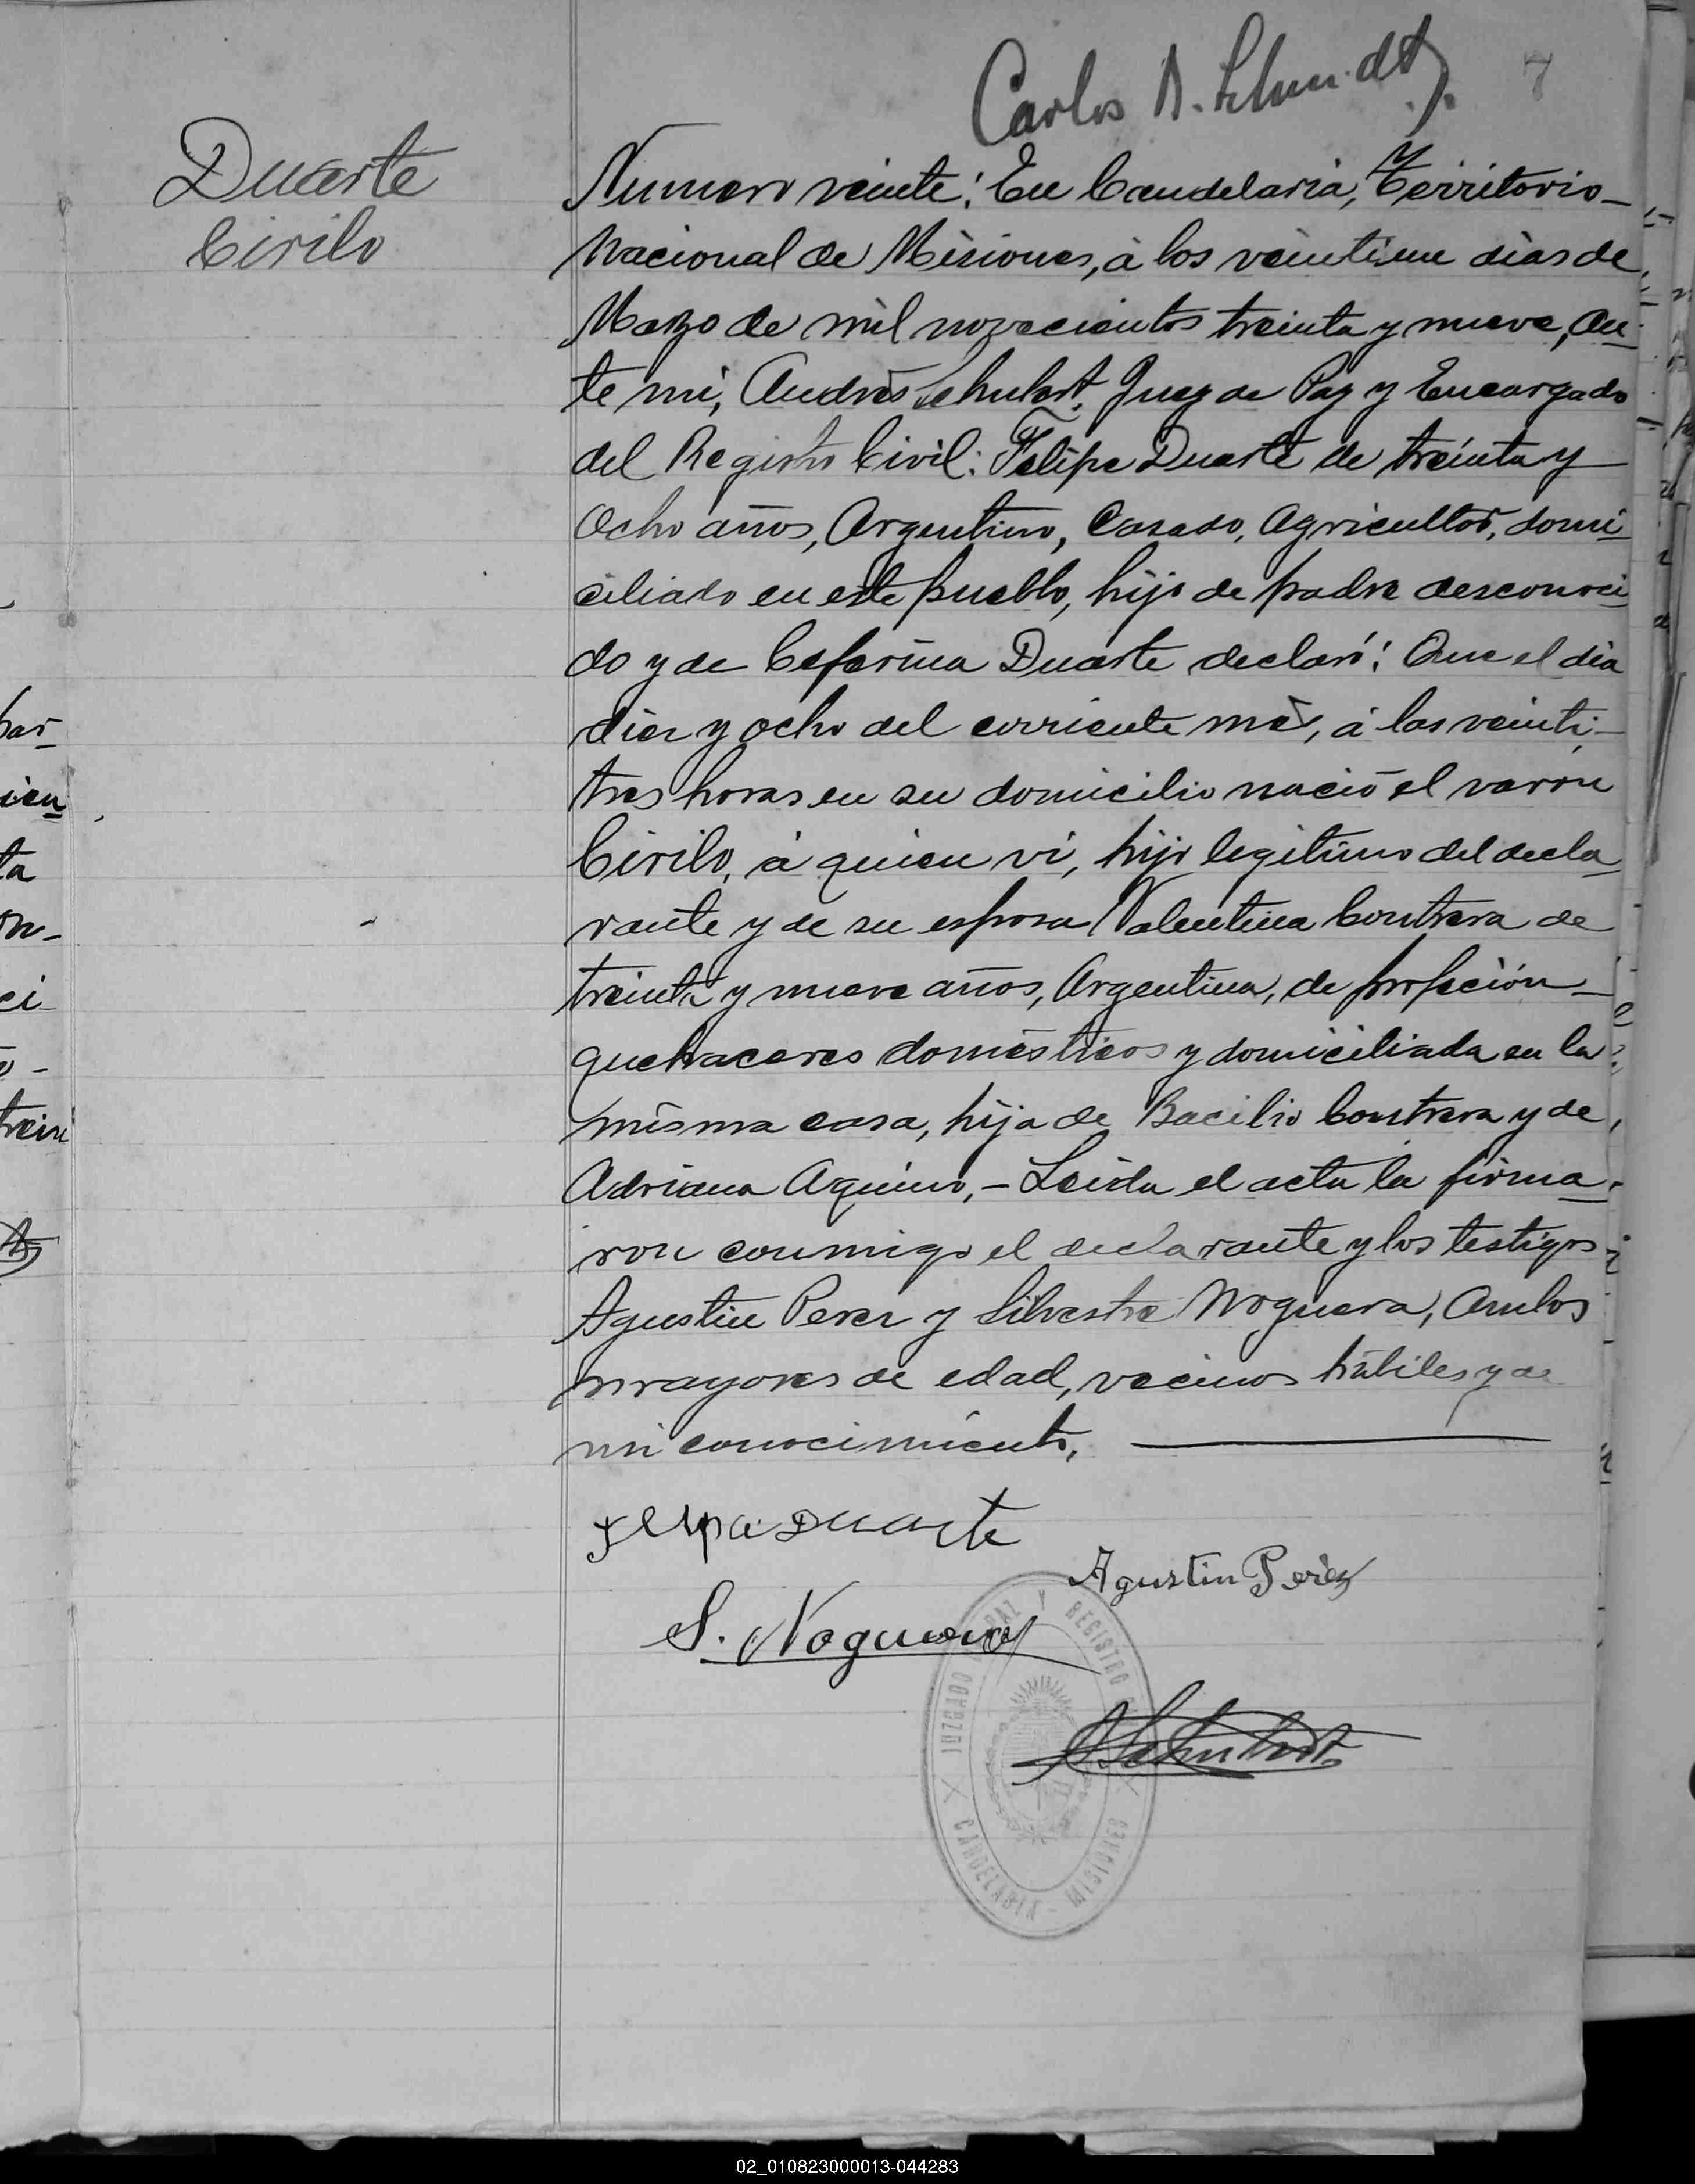 Carlos A. Schmidt 7
Duarte
Cirilo
Numero veinte: En Candelaria, Territorio
Nacional de Misiones, á los veintiun dias de
Marzo de mil novecientos treinta y nueve, an
te mi, Andrés Schubert, Juez de Paz y Encargado
del Registro Civil: Felipe Duarte de treinta y
Ocho años, Argentino, Casado, Agricultor, domi
ciliado en este pueblo, hijo de padre desconoci
do y de Ceferina Duarte declaró: Que el dia
diez y ocho del corriente més, á las veinti-
tres horas en su domicilio nació el varon
Cirilo, á quien vi, hijo legitimo del decla
rante y de su esposa Valentina Contrera de
treinta y nueve años, Argentina, de profeción
quehaceres domésticos y domiciliada en la
misma casa, hija de Bacilio Contrera y de
Adriana Aquino,- Leida el acta la firma
ron conmigo el declarante y los testigos
Agustin Perez y Silvestre Noguera, Ambos
mayores de edad, vecinos hábiles y de
mi conocimiento,
Felipe Duarte
Agustin Perez
S. Noguera
JUZGADO PAZ Y REGISTRO
ASchubert
CANDELARIA - MISIONES
par
ien
ta
on-
ci
trein
02_010823000013-044283